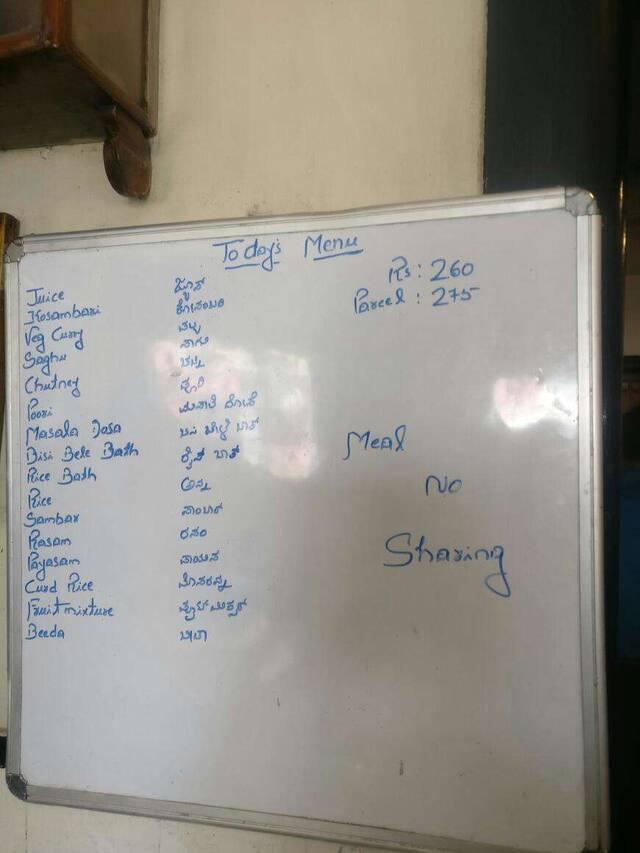 Today's Menu
Rs: 260
Parcel: 275
Juice ಜ್ಯೂಸ್
Kosambari ಕೋಸಂಬರಿ
Veg Curry ಪಲ್ಯ
Saghu ಸಾಗು
Chutney ಚಟ್ನಿ
Poori ಪೂರಿ
Masala Dosa ಮಸಾಲೆ ದೋಸೆ
Bisi Bele Bath ಬಿಸಿ ಬೇಳೆ ಬಾತ್
Rice Bath ರೈಸ್ ಬಾತ್
Rice ಅನ್ನ
Sambar ಸಾಂಬಾರ್
Rasam ರಸಂ
Payasam ಪಾಯಸ
Curd Rice ಮೊಸರನ್ನ
Fruit mixture ಫ್ರೂಟ್ ಮಿಕ್ಸರ್
Beeda ಬೀಡಾ
Meal
No
Sharing